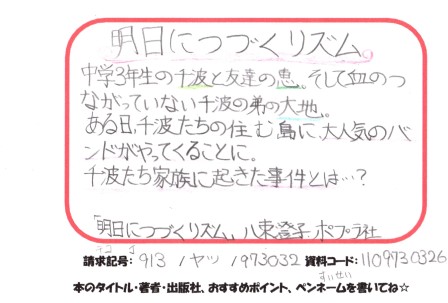 明日につづくリズム。
中学3年生の千波と友達の恵。そして血のつ
ながっていない千波の弟の大地。
ある日、千波たちの住む島に、大人気のバ
ンドがやってくることに。
千波たち家族に起きた事件とは…?
「明日につづくリズム」 八束澄子 ポプラ社
請求記号: 913 / ヤツ / 973032 資料コード: 1109730326
すいせい
本のタイトル・著者・出版社、おすすめポイント、ペンネームを書いてね☆